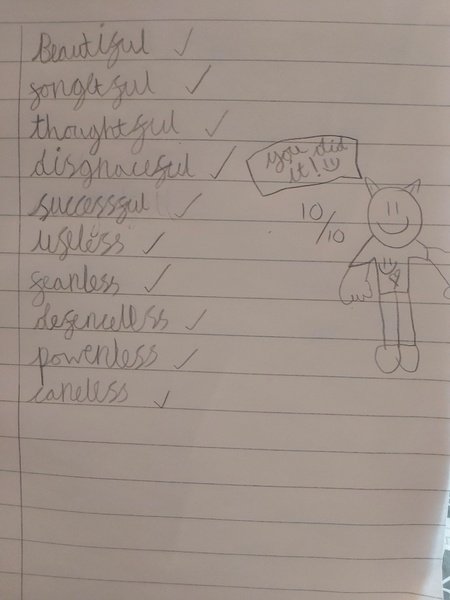 Beautiful ✓
forgetful ✓
thoughtful ✓
disgraceful ✓
you did
it!
successful ✓
10/10
useless ✓
fearless ✓
defenceless ✓
powerless ✓
careless ✓